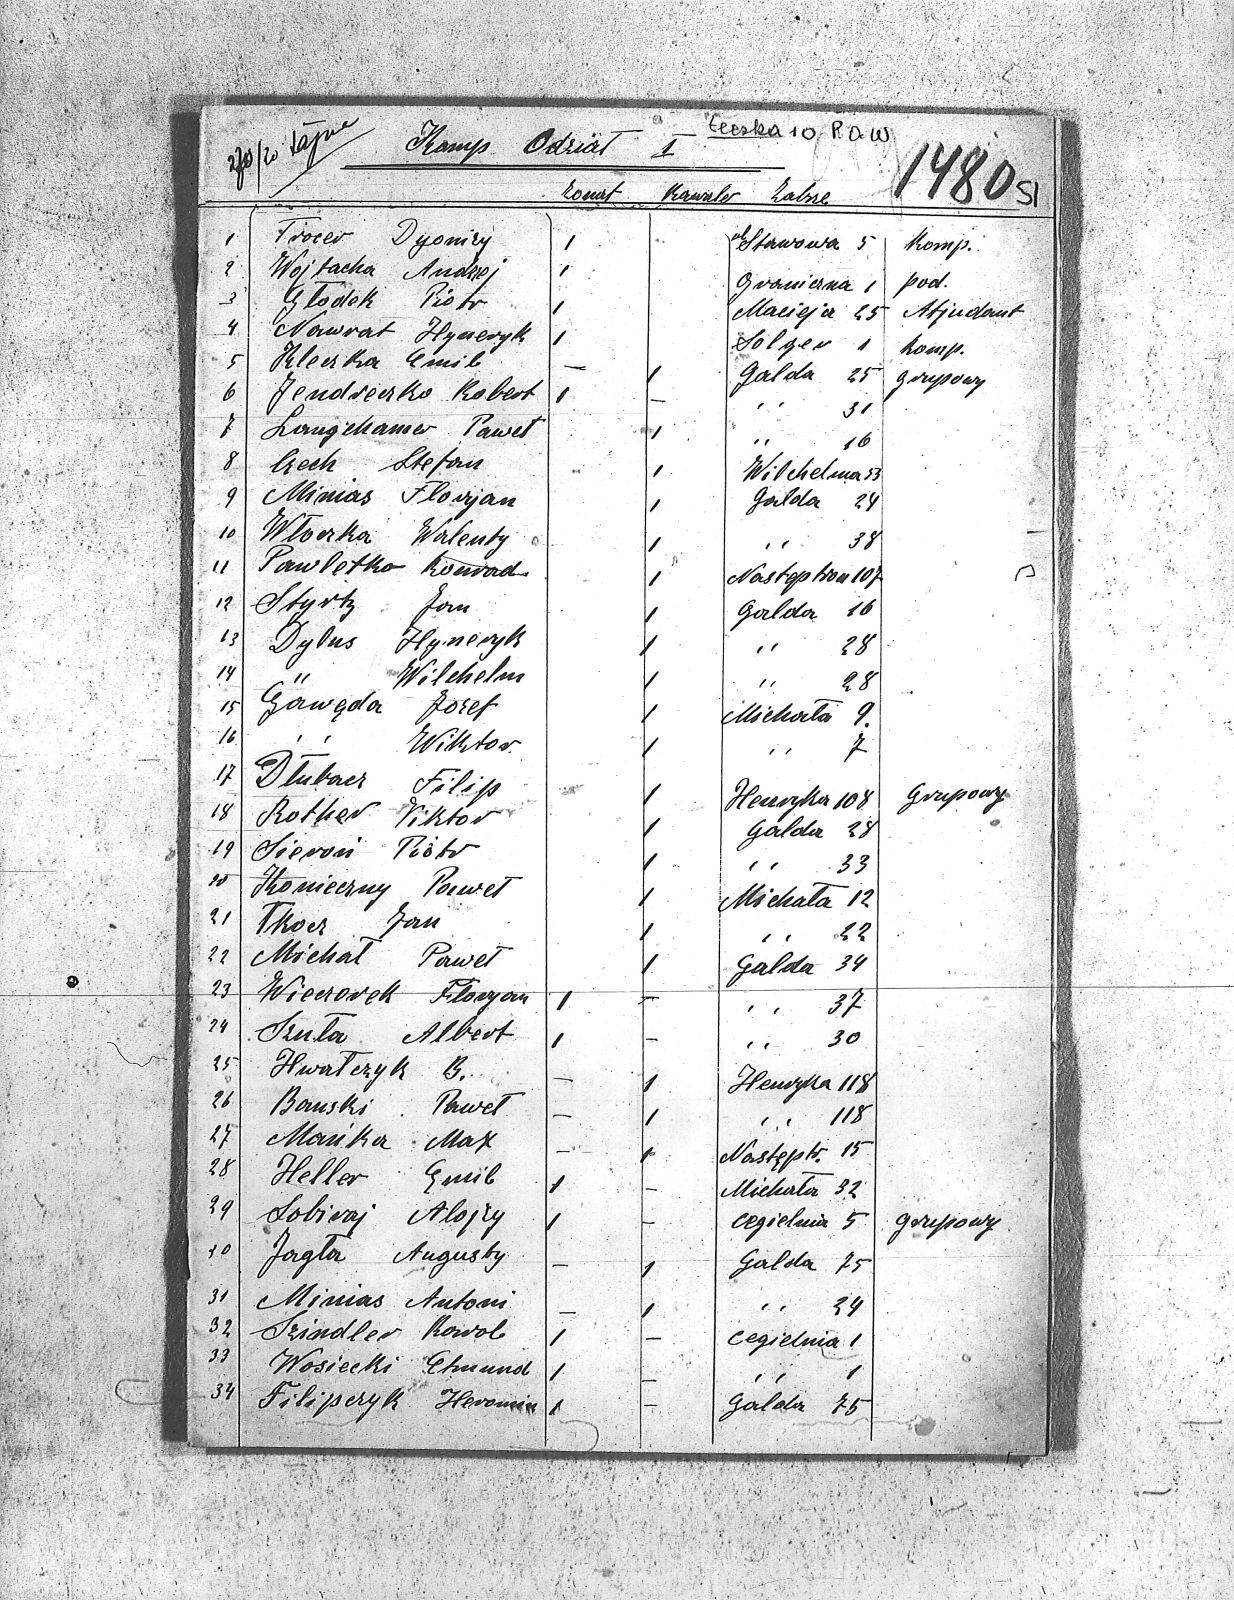 Tajne
Komp. Odziat I Teczka 10 P.O.W
1480 Sl
Żonat Kawaler Zabrze
1 Trocer Dyonizy 1 ul. Stawowa 5 Komp.
2 Wojtacha Andrzej 1 Granierna 1 pod.
3 Głodek Piotr 1 Macieja 25 Atjudant
4 Nawrat Hyneryk 1 Solger 1 Komp.
5 Kleczka Emil — 1 Galda 25 grupowy
6 Jendreczko Robert 1 — ,, 31
7 Langhamer Paweł 1 ,, 16
8 Czech Stefan 1 Wilchelma 53
9 Minias Florjan 1 Galda 24
10 Wloczka Walenty 1 ,, 38
11 Pawletko Konrad 1 Następtron 107
12 Styrtz Jan 1 Galda 16
13 Dylus Hyneryk 1 ,, 28
14 ,, Wilchelm 1 ,, 28
15 Gawęda Jozef 1 Michała 9.
16 ,, Wiktor 1 ,, 7
17 Dłubacz Filip 1 Henryka 108 Grupowy
18 Rother Viktor 1 Galda 28
19 Sieroń Piotr 1 ,, 33
20 Konieczny Paweł 1 Michała 12
21 Tkocz Jan 1 ,, 22
22 Michał Paweł 1 Galda 34
23 Wieczorek Florjan 1 — ,, 37
24 Szuła Albert 1 — ,, 30
25 Hwałczyk B. — 1 Henryka 118
26 Banski Paweł — 1 ,, 118
27 Mańka Max — 1 Następtr. 15
28 Heller Emil 1 — Michała 32
29 Sobiraj Alojzy 1 — Cegielnia 5 grupowy
30 Jagła Augusty — 1 Galda 75
31 Minias Antoni — 1 ,, 24
32 Szindler Karol 1 — Cegielnia 1
33 Wosiecki Etmund 1 — ,, 1
34 Filipczyk Heromin 1 — Galda 75